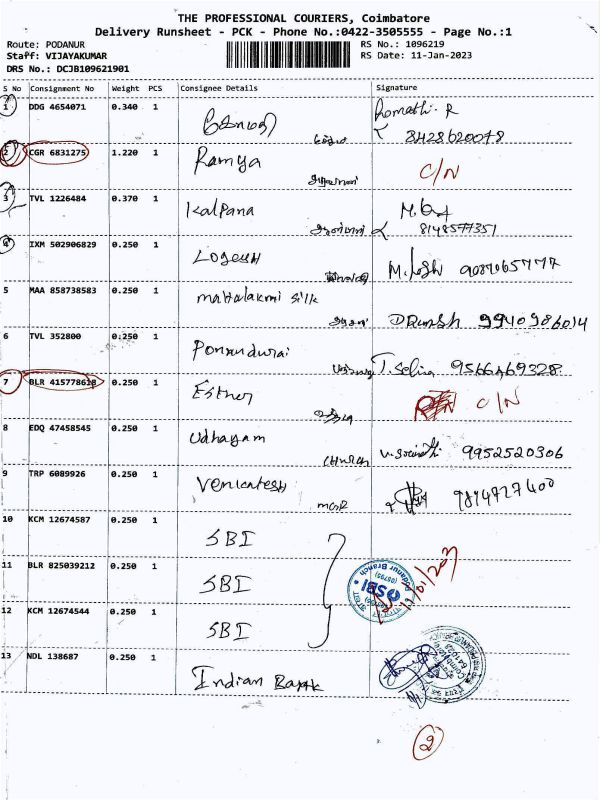 THE PROFESSIONAL COURIERS, Coimbatore
Delivery Runsheet - PCK - Phone No.:0422-3505555 - Page No.:1
Route: PODANUR RS No.: 1096219
Staff: VIJAYAKUMAR RS Date: 11-Jan-2023
DRS No.: DCJB109621901
S No Consignment No Weight PCS Consignee Details Signature
1 DDG 4654071 0.340 1 Romathi. R
8428620048
2 CGR 6831275 1.220 1 Ramya C/N
3 TVL 1226484 0.370 1 Kalpana
8148577351
4 IXM 502906829 0.250 1 Logesh
5 MAA 858738583 0.250 1 mahalakmi silk 9940986014
6 TVL 352800 0.250 1 Ponnudurai T. Selina 9566469328
7 BLR 415778618 0.250 1 Esther C/N
8 EDQ 47458545 0.250 1 Udhayam
church 9952520306
9 TRP 6089926 0.250 1 Venkatesh
9894727400
10 KCM 12674587 0.250 1 SBI
11 BLR 825039212 0.250 1 SBI
12 KCM 12674544 0.250 1 SBI
13 NDL 138687 0.250 1 Indian Bank
2